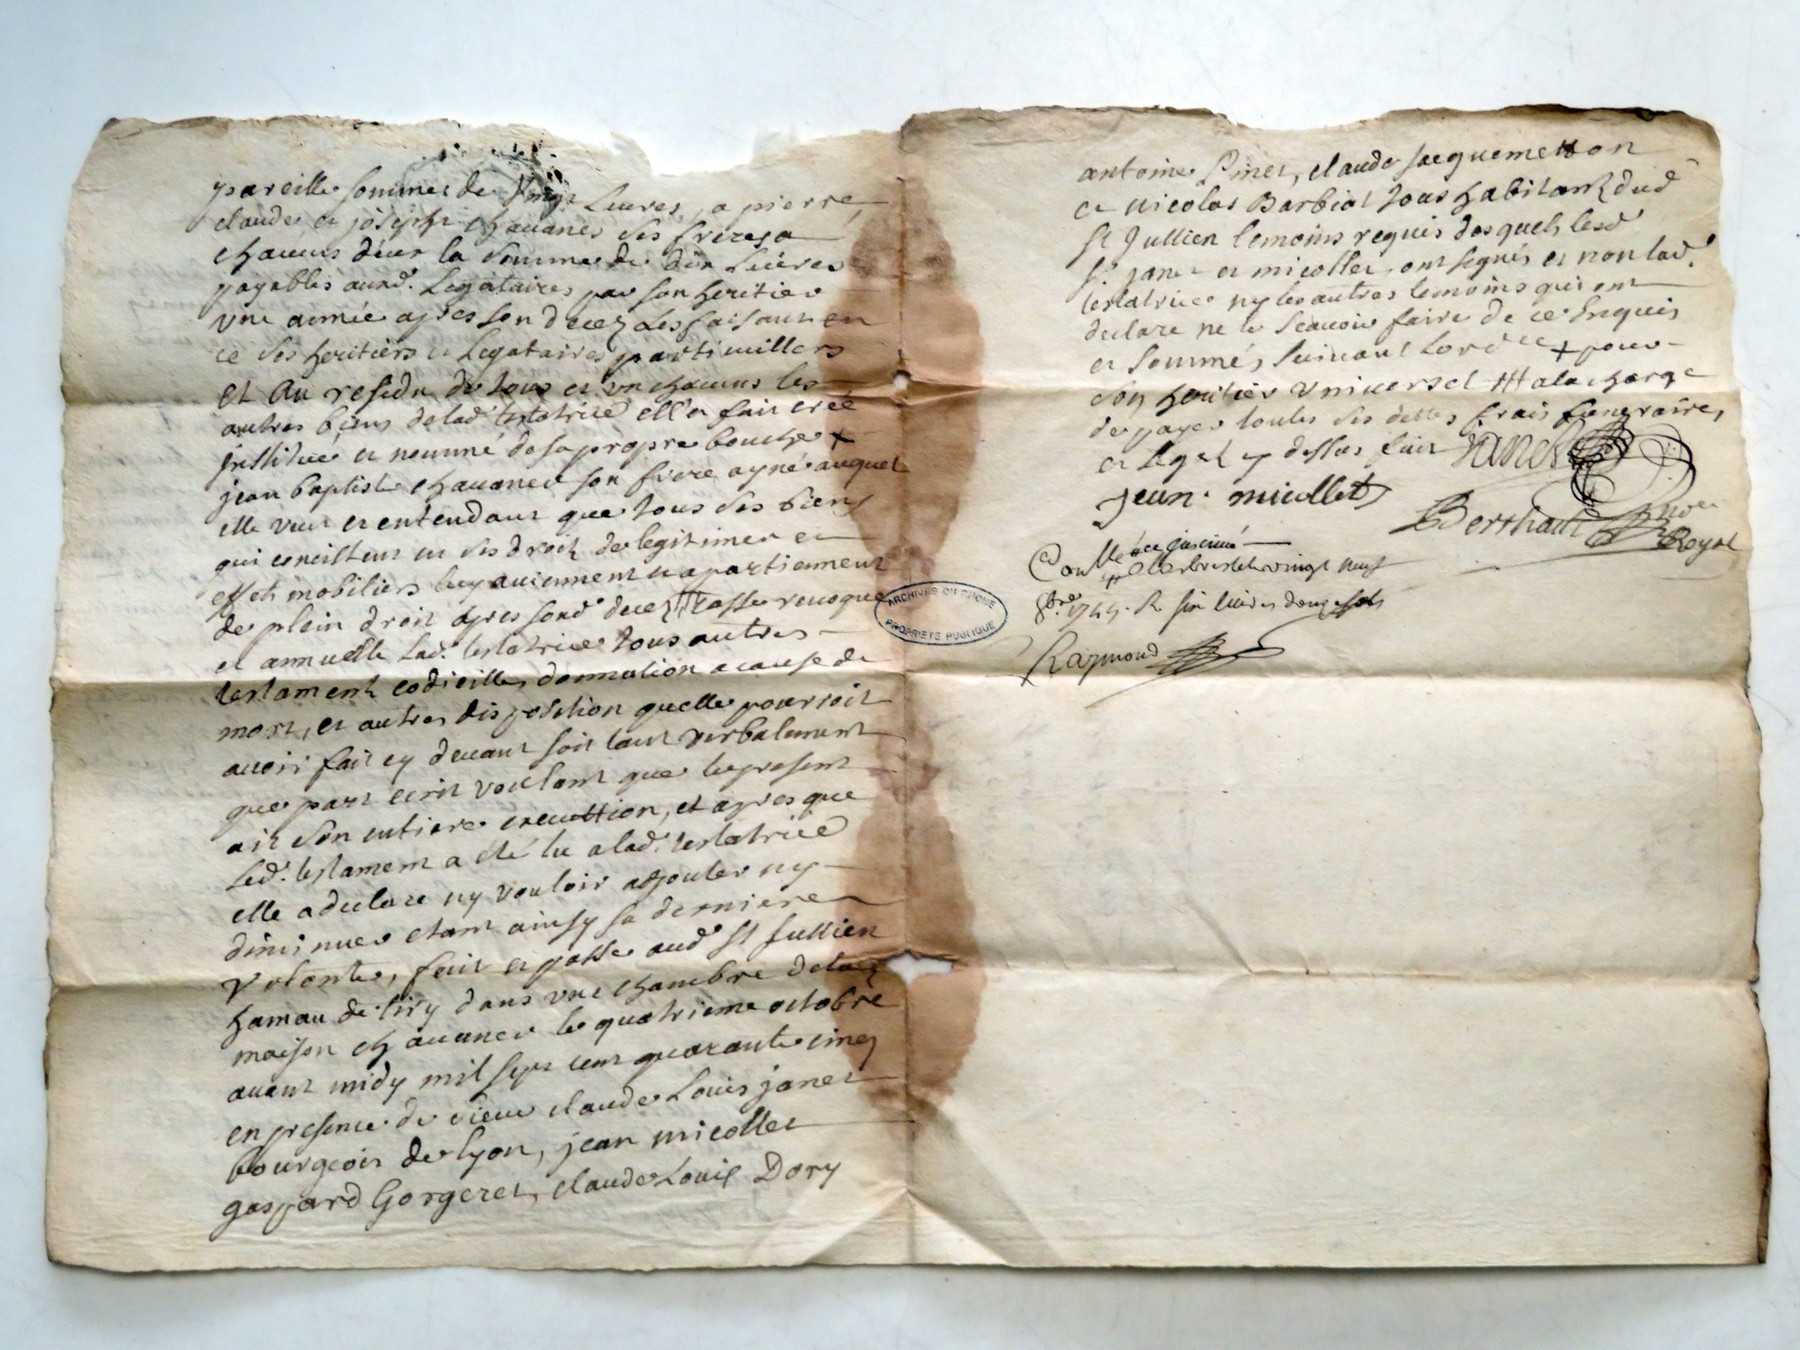 pareille somme de vingt Livres, a pierre,
claude et joseph chavanes ses freres a
chacuns d'eux la somme de dix Livres
payables ausd. Legataires par son heritier
une année apres son decez Les faisant en
ce ses heritiers et Legataires particulliers
Et Au residu de tous et un chacuns les
autres biens de lad. testatrice elle a fait crée
jnstitué et nommé de sa propre bouche +
jean baptiste chavanes son frere ayné auquel
elle veut et entendant que tous ses biens
qui concistent en ses droits de legitimes et
effets mobiliers luy aviennent et apartiennent
de plein droit apres sond. decez casse revoque
et annuelle Lad. testatrice tous autres
testament codicilles donnation a cause de
mort, et autres disposition quelle pourroit
avoir fait cy devant soit tant verbalement
que part ecrit voulant que le present
ait son entiere executtion, et apres que
Led. testament a été lu a lad. testatrice
elle a declare ny vouloir adjouter ny
diminuer etant ainsy sa derniere
volonte, fait et passé aud. St Jullien
hamau de tiry dans une chambre de la
maison chavanes le quatrieme octobre
avant midy mil sept cent quarante cinq
en presence de sieur claude Louis janet
bourgeois de lyon, jean micollet
gaspard Gorgeret, claude Louis Dory
antoine Pinet, claude jacquemetton
et nicolas Barbiat tous habitants dud.
St Jullien temoins requis desquels lesd.
Sr. janet et micollet ont signés et non lad.
testatrice ny les autres temoins qui ont
declare ne le scavoir faire de ce Enquis
et sommés suivant Lordce + pour
son heritier universel a la charge
de payer toutes ses dettes, frais funeraires,
et legat cy dessus fait Janet
jean micollet
Berthaud Nore
Royal
Conllé
vingt neuf
8bre 1745. R six livres douze sols
Raymond
ARCHIVES DU RHONE
PROPRIETE PUBLIQUE